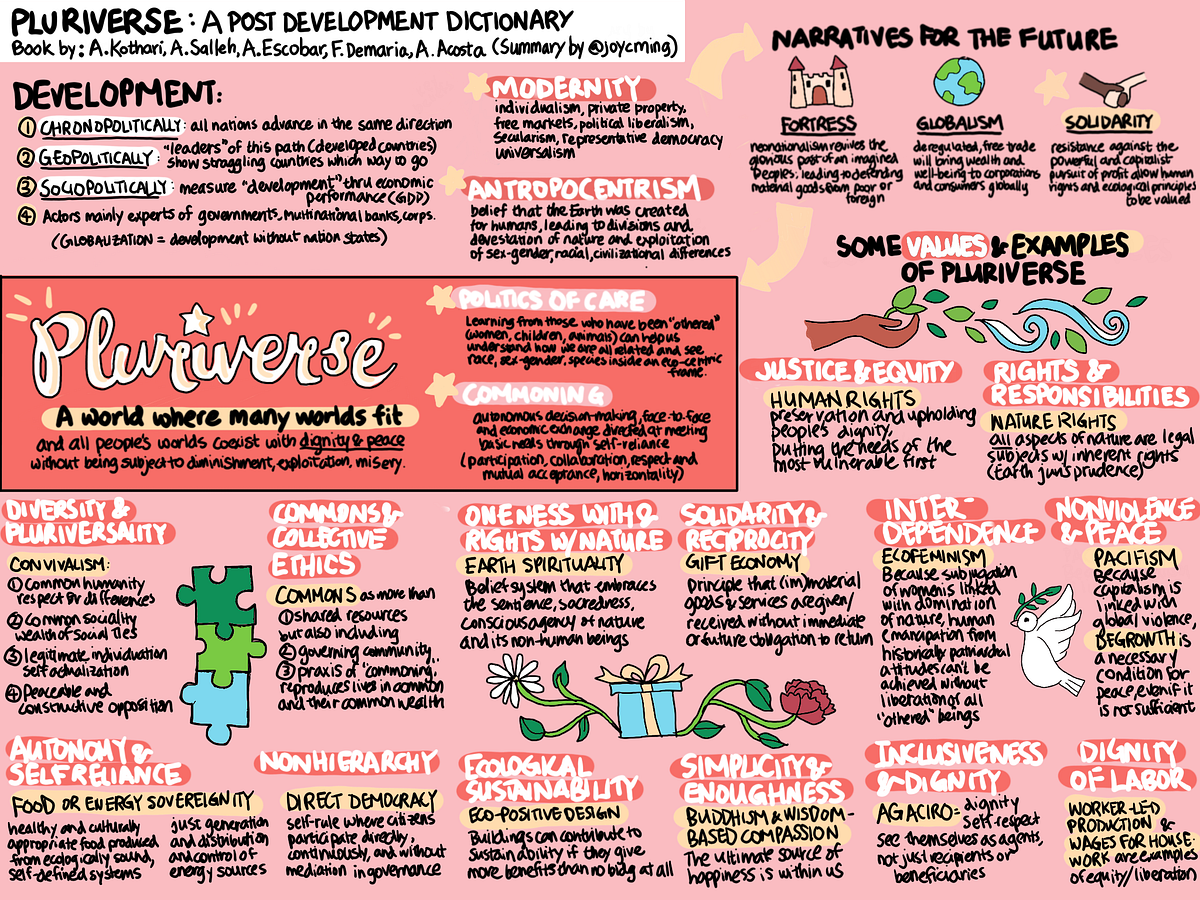 PLURIVERSE: A POST DEVELOPMENT DICTIONARY
Book by: A.Kothari, A.Salleh, A.Escobar, F.Demaria, A.Acosta (Summary by @joycming)
DEVELOPMENT:
① CHRONOPOLITICALLY: all nations advance in the same direction
② GEOPOLITICALLY: "leaders" of this path (developed countries)
show straggling countries which way to go
③ SOCIOPOLITICALLY: measure "development" thru economic
performance (GDP)
④ Actors mainly experts of governments, multinational banks, corps.
(GLOBALIZATION = development without nation states)
MODERNITY
individualism, private property,
free markets, political liberalism,
secularism, representative democracy
universalism
ANTROPOCENTRISM
belief that the Earth was created
for humans, leading to divisions and
devestation of nature and exploitation
of sex-gender, racial, civilizational differences
NARRATIVES FOR THE FUTURE
FORTRESS
neonationalism revives the
glorious past of an imagined
Peoples, leading to defending
material goods from poor or
foreign
GLOBALISM
deregulated, free trade
will bring wealth and
well-being to corporations
and consumers globally
SOLIDARITY
resistance against the
powerful and capitalist
pursuit of profit allow human
rights and ecological principles
to be valued
Pluriverse
A world where many worlds fit
and all people's worlds coexist with dignity & peace
without being subject to diminishment, exploitation, misery.
POLITICS OF CARE
Learning from those who have been "othered"
(women, children, animals) can help us
understand how we are all related and see
race, sex-gender, species inside an eco-centric
frame.
COMMONING
autonomous decision-making, face-to-face
and economic exchange directed at meeting
basic needs through self-reliance
(participation, collaboration, respect and
mutual acceptance, horizontality)
SOME VALUES & EXAMPLES
OF PLURIVERSE
JUSTICE & EQUITY
HUMAN RIGHTS
preservation and upholding
people's dignity,
putting the needs of the
most vulnerable first
RIGHTS &
RESPONSIBILITIES
NATURE RIGHTS
all aspects of nature are legal
subjects w/ inherent rights
(Earth jurisprudence)
DIVERSITY &
PLURIVERSALITY
CONVIVALISM:
① Common humanity
respect for differences
② Common sociality
wealth of social ties
③ legitimate individuation
self actualization
④ Peaceable and
constructive opposition
COMMONS &
COLLECTIVE
ETHICS
COMMONS as more than
① shared resources
but also including
② governing community,
③ praxis of "commoning,
reproduces lives in common
and their common wealth
ONENESS WITH &
RIGHTS W/ NATURE
EARTH SPIRITUALITY
Belief system that embraces
the sentience, sacredness,
conscious agency of nature
and its non-human beings
SOLIDARITY &
RECIPROCITY
GIFT ECONOMY
Principle that (im)material
goods & services are given/
received without immediate
or future obligation to return
INTER-
DEPENDENCE
ECOFEMINISM
Because subjugation
of women is linked
with domination
of nature, human
emancipation from
historically patriarchal
attitudes can't be
achieved without
liberation of all
"othered" beings
NONVIOLENCE
& PEACE
PACIFISM
Because
capitalism is
linked with
global violence,
DEGROWTH is
a necessary
condition for
peace, even if it
is not sufficient
AUTONOMY &
SELF RELIANCE
FOOD OR ENERGY SOVEREIGNITY
healthy and culturally
appropriate food produced
from ecologically sound,
self-defined systems
just generation
and distribution
and control of
energy sources
NONHIERARCHY
DIRECT DEMOCRACY
self-rule where citizens
participate directly,
continuously, and without
mediation in governance
ECOLOGICAL
SUSTAINABILITY
ECO-POSITIVE DESIGN
Buildings can contribute to
sustainability if they give
more benefits than no bldg at all
SIMPLICITY &
ENOUGHNESS
BUDDHISM & WISDOM-
BASED COMPASSION
The ultimate source of
happiness is within us
INCLUSIVENESS
& DIGNITY
AGACIRO = dignity
self-respect
see themselves as agents,
not just recipients or
beneficiaries
DIGNITY
OF LABOR
WORKER-LED
PRODUCTION &
WAGES FOR HOUSE-
WORK are examples
of equity/liberation